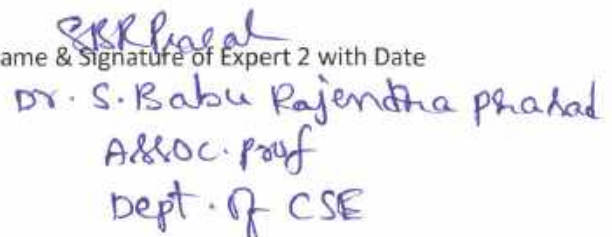 SBR Prasad
ame & Signature of Expert 2 with Date
Dr. S. Babu Rajendra Prasad
Assoc. Prof
Dept. of CSE